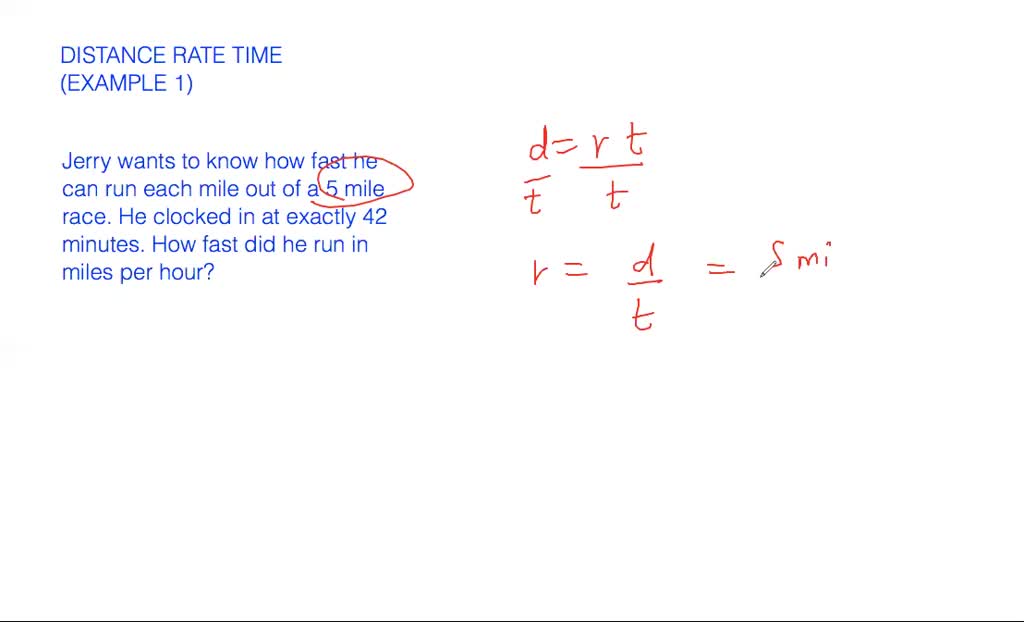 DISTANCE RATE TIME
(EXAMPLE 1)
Jerry wants to know how fast he
can run each mile out of a 5 mile
race. He clocked in at exactly 42
minutes. How fast did he run in
miles per hour?
d = r t
t t
r = d = 5 mi
t